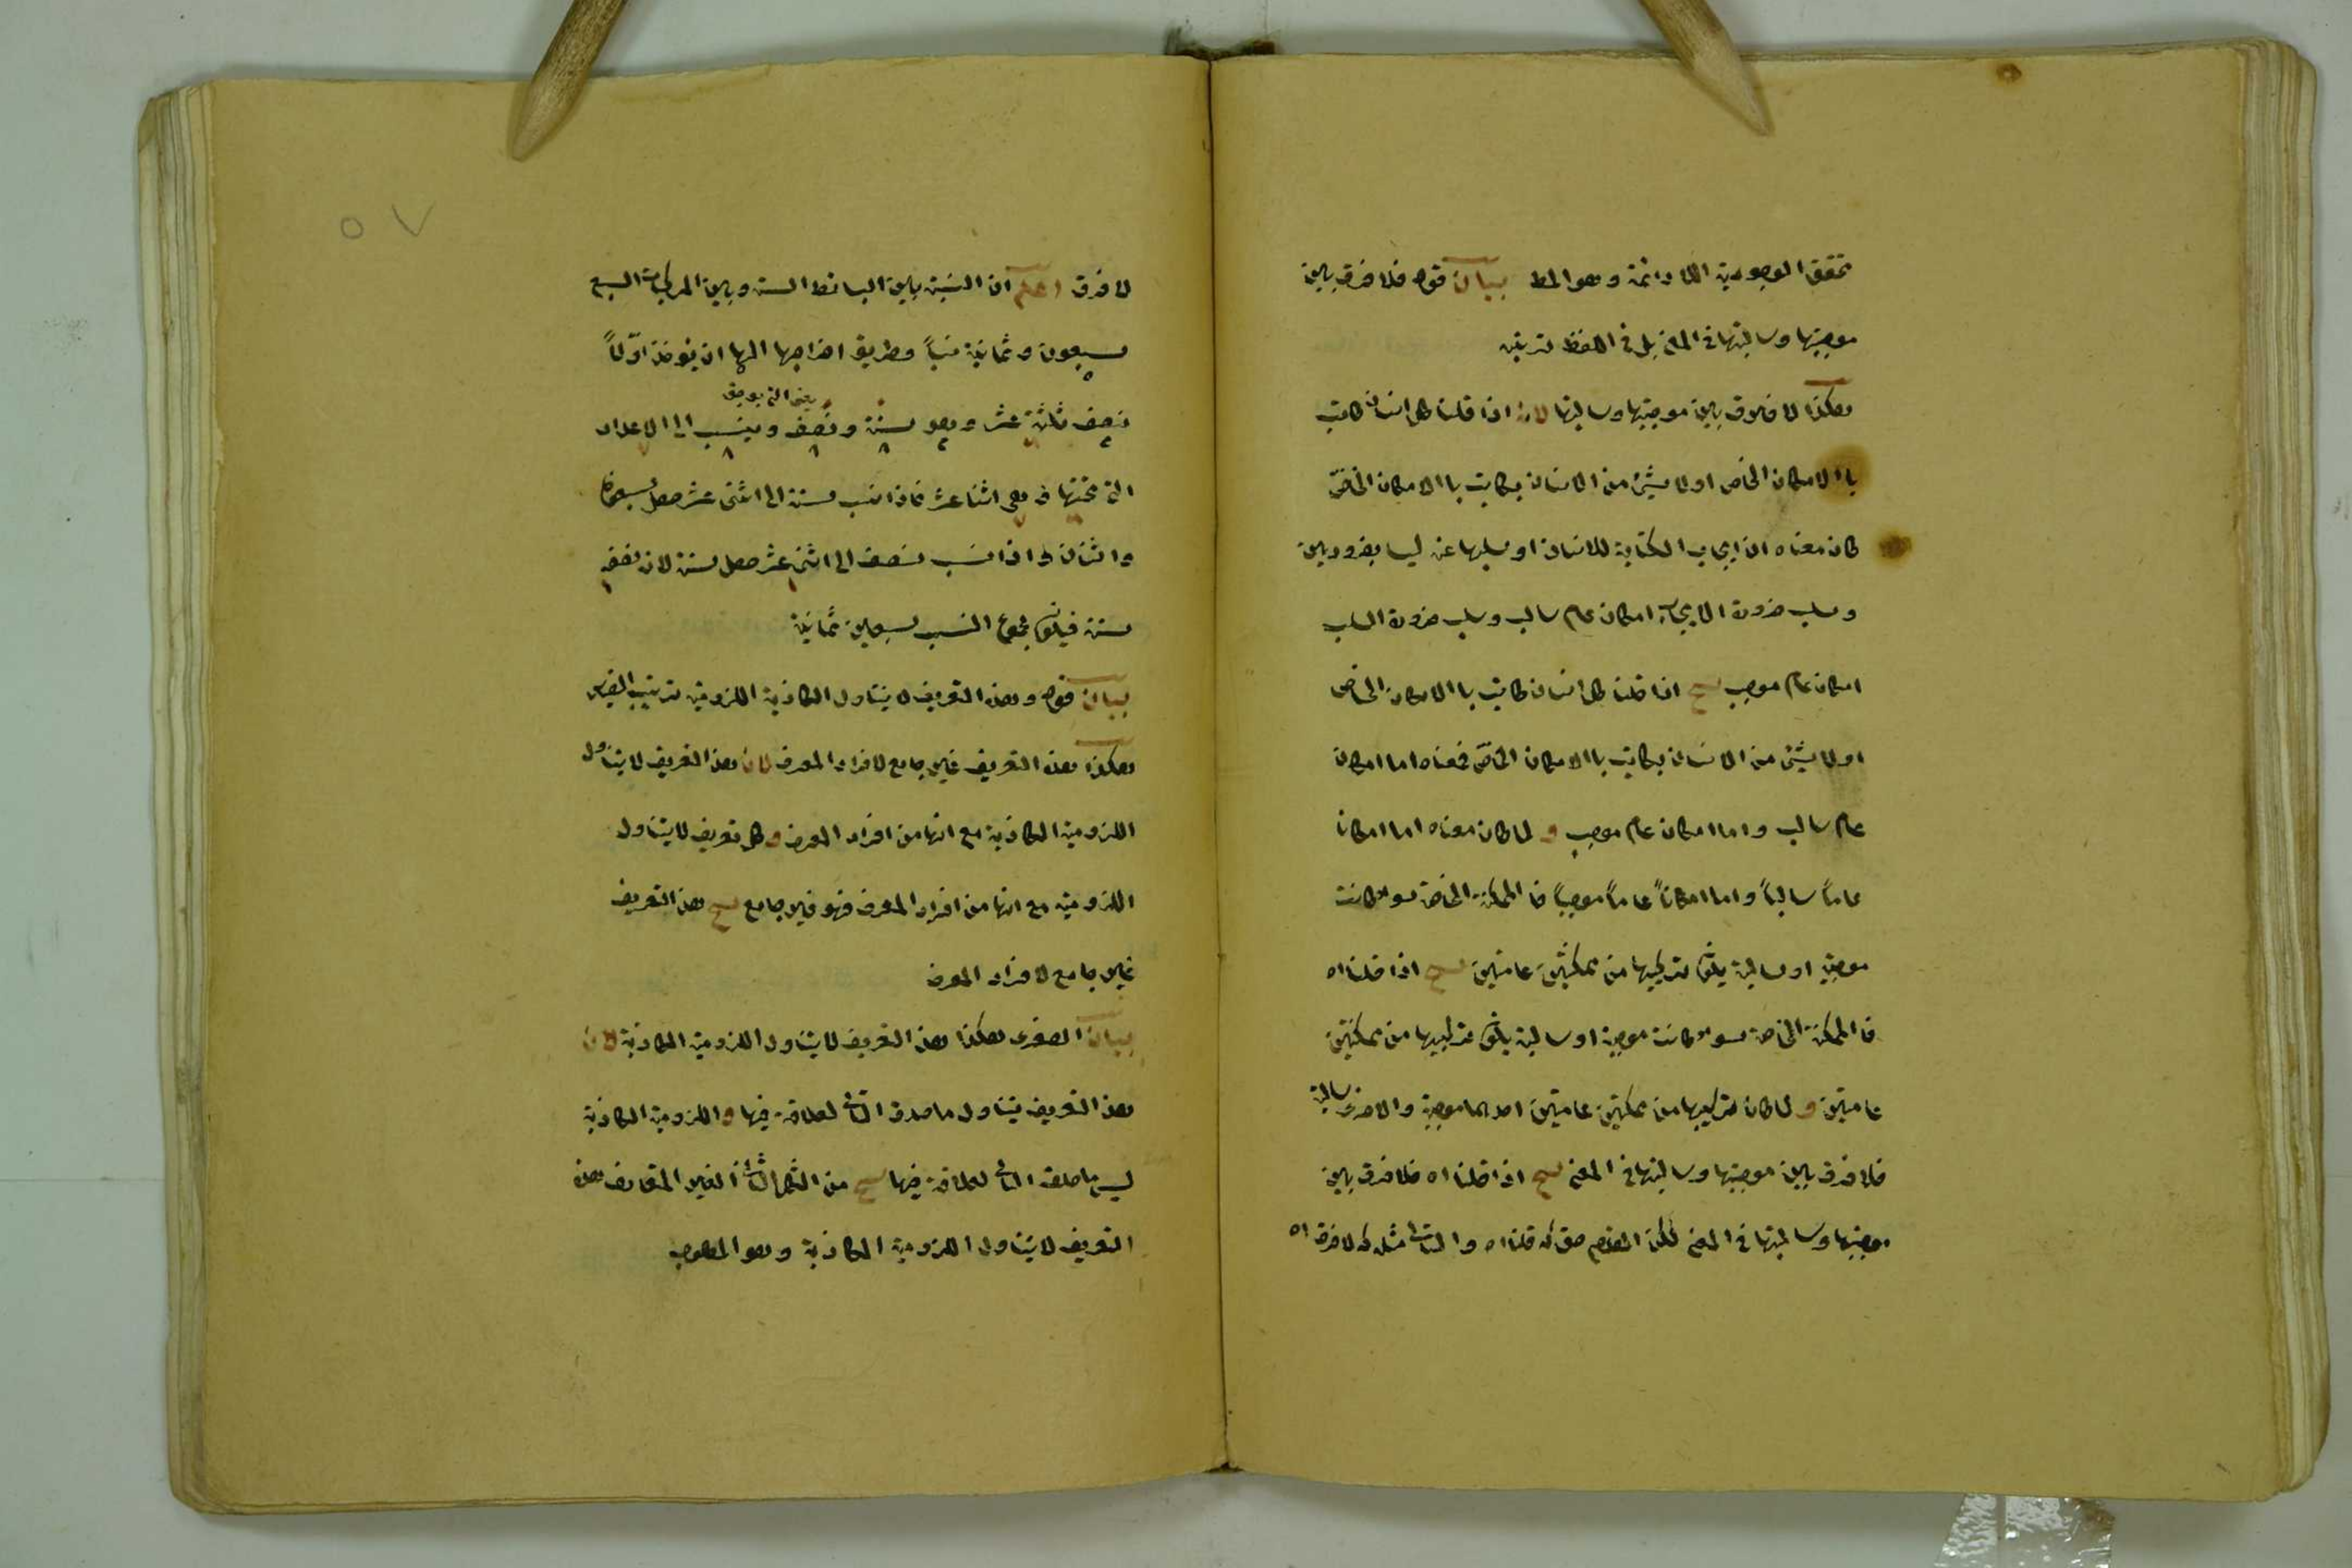 تحقق الوجودية اللادائمة وهو المط بيان قوله فلا فرق بين
موجبتها وسالبتها في المعنى بل في اللفظ ترتيبه
هكذا لا فرق بين موجبتها وسالبتها لان اذا قلنا كل انسان كاتب
با الامكان الخاص او لا شيئ من الانسان بكاتب با الامكان الخاصّ
كان معناه ان ايجاب الكتابة للانسان او سلبها عنه ليسا بضروريين
وسلب ضرورة الايجاب امكان عام سالب وسلب ضرورة السلب
امكان عام موجب ينتج اذا قلنا كل انسان كاتب با الامكان الخاص
او لا شيئ من الانسان بكاتب با الامكان الخاصّ فمعناه اما امكان
عام سالب واما امكان عام موجب و لما كان معناه اما امكانا
عاماً سالباً واما امكاناً عاماً موجباً فا الممكنة الخاصة سواء كانت
موجبة او سالبة يكون تركيبها من ممكنتين عامتين ينتج اذا قلنا اه
فا الممكنة الخاصة سواء كانت موجبة او سالبة يكون تركيبها من ممكنتين
عامتين و لما كان تركيبها من ممكنتين عامتين احديهما موجبة والاخرى سالبة
فلا فرق بين موجبتها وسالبتها في المعنى ينتج اذا قلنا اه فلا فرق بين
موجبتها وسالبتها في المعنى لكن المقدم حق قلنا اه والتالى مثله لا فرق اه
٥٧
لا فرق اعلم ان النسبة بين البسائط الست وبين المركبات السبع
سبعون وثمانية نسباً وطريق اخراجها انها ان يؤخذ اوّلاً
نصف ثلثة عشر وهو ستة ونصف وينسب الى الاعداد
التى تحتها وهى اثنا عشر فاذا نسب ستة الى اثنى عشر حصل سبعون
واثنان واذا نسب نصف الى اثنى عشر حصل ستة لان نصفه
ستة فيكون مجموع النسب سبعين ثمانية
بيان قوله وهذا التعريف لا يتناول الكاذبة اللزومية ترتيب القياس
هكذا هذا التعريف غير جامع لافراد المعرف لان هذا التعريف لا يتناول
اللزومية الكاذبة مع انها من افراد المعرف وكل تعريف لا يتناول
اللزومية مع انها من افراد المعرف فهو غير جامع ينتج هذا التعريف
غير جامع لافراد المعرف
بيان الصغرى هكذا هذا التعريف لا يتناول اللزومية الكاذبة لان
هذا التعريف يتناول ما صدق التالى لعلاقة فيها و اللزومية الكاذبة
ليس ما صدق التالى لعلاقة فيها ينتج من الشكل الثانى الغير المتعارف هذا
التعريف لا يتناول اللزومية الكاذبة وهو المطلوب